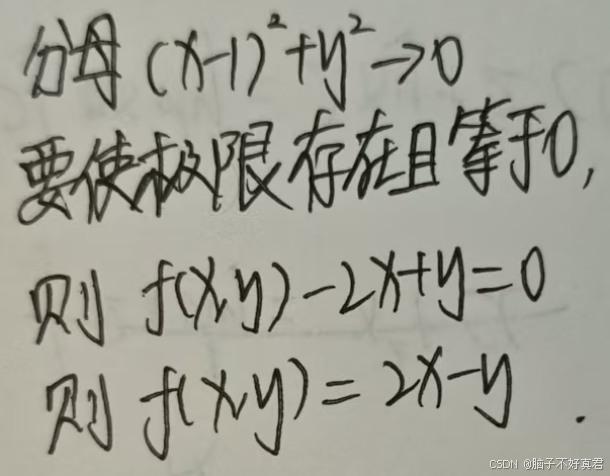 分母 (x-1)²+y²→0
要使极限存在且等于0,
则 f(x,y)-2x+y=0
则 f(x,y)=2x-y .
CSDN @脑子不好真君